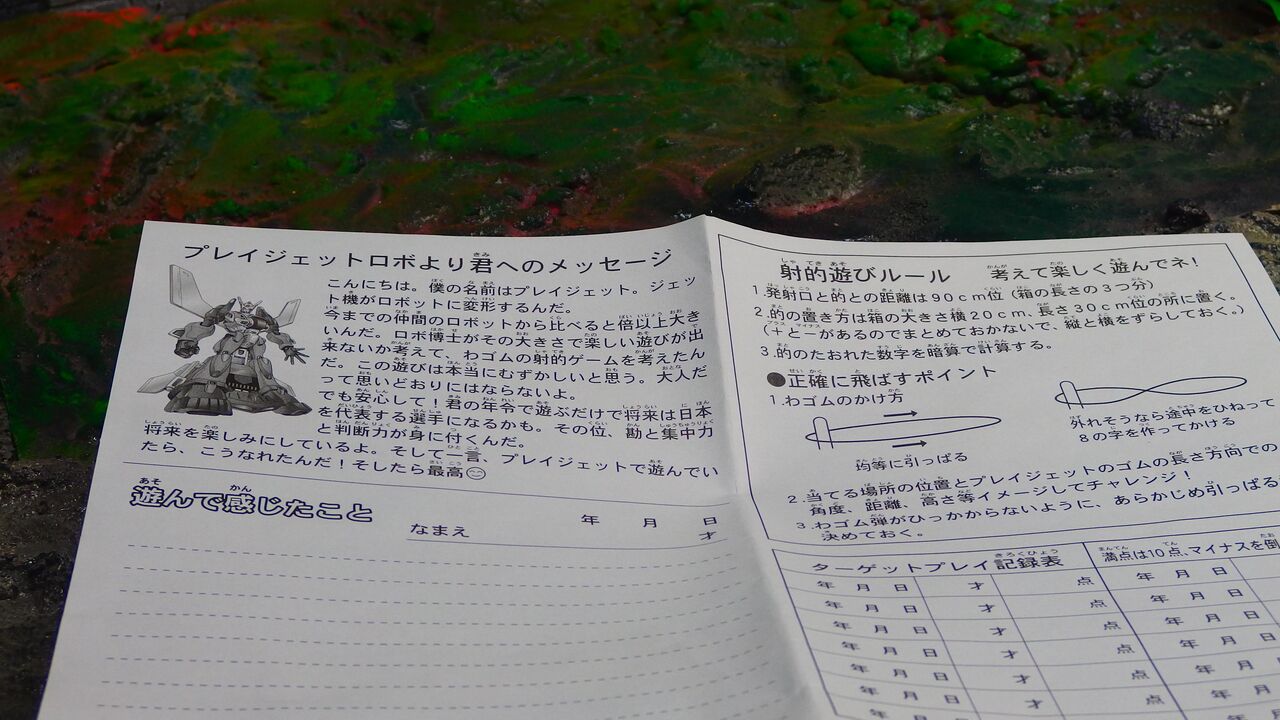 プレイジェットロボより君へのメッセージ
こんにちは。僕の名前はプレイジェット。ジェッ
ト機がロボットに変形するんだ。
今までの仲間のロボットから比べると倍以上大き
いんだ。ロボ博士がその大きさで楽しい遊びが出
来ないか考えて、わゴムの射的ゲームを考えたん
だ。この遊びは本当にむずかしいと思う。大人だ
って思いどおりにはならないよ。
でも安心して！君の年令で遊ぶだけで将来は日本
を代表する選手になるかも。その位、勘と集中力
と判断力が身に付くんだ。
将来を楽しみにしているよ。そして一言、プレイジェットで遊んでい
たら、こうなれたんだ！そしたら最高
遊んで感じたこと
年 月 日
なまえ 才
射的遊びルール 考えて楽しく遊んでネ！
1.発射口と的との距離は90cm位（箱の長さの3つ分）
2.的の置き方は箱の大きさ横20cm、長さ30cm位の所に置く。
（＋と－があるのでまとめておかないで、縦と横をずらしておく。）
3.的のたおれた数字を暗算で計算する。
●正確に飛ばすポイント
1.わゴムのかけ方
均等に引っぱる
外れそうなら途中をひねって
8の字を作ってかける
2.当てる場所の位置とプレイジェットのゴムの長さ方向での
角度、距離、高さ等イメージしてチャレンジ！
3.わゴム弾がひっかからないように、あらかじめ引っぱる
決めておく。
ターゲットプレイ記録表 満点は10点、マイナスを倒
年 月 日 才 点 年 月 日
年 月 日 才 点 年 月 日
年 月 日 才 点 年 月 日
年 月 日 才 点 年 月 日
年 月 日 才 点 年 月 日
年 月 日 才 点 年 月